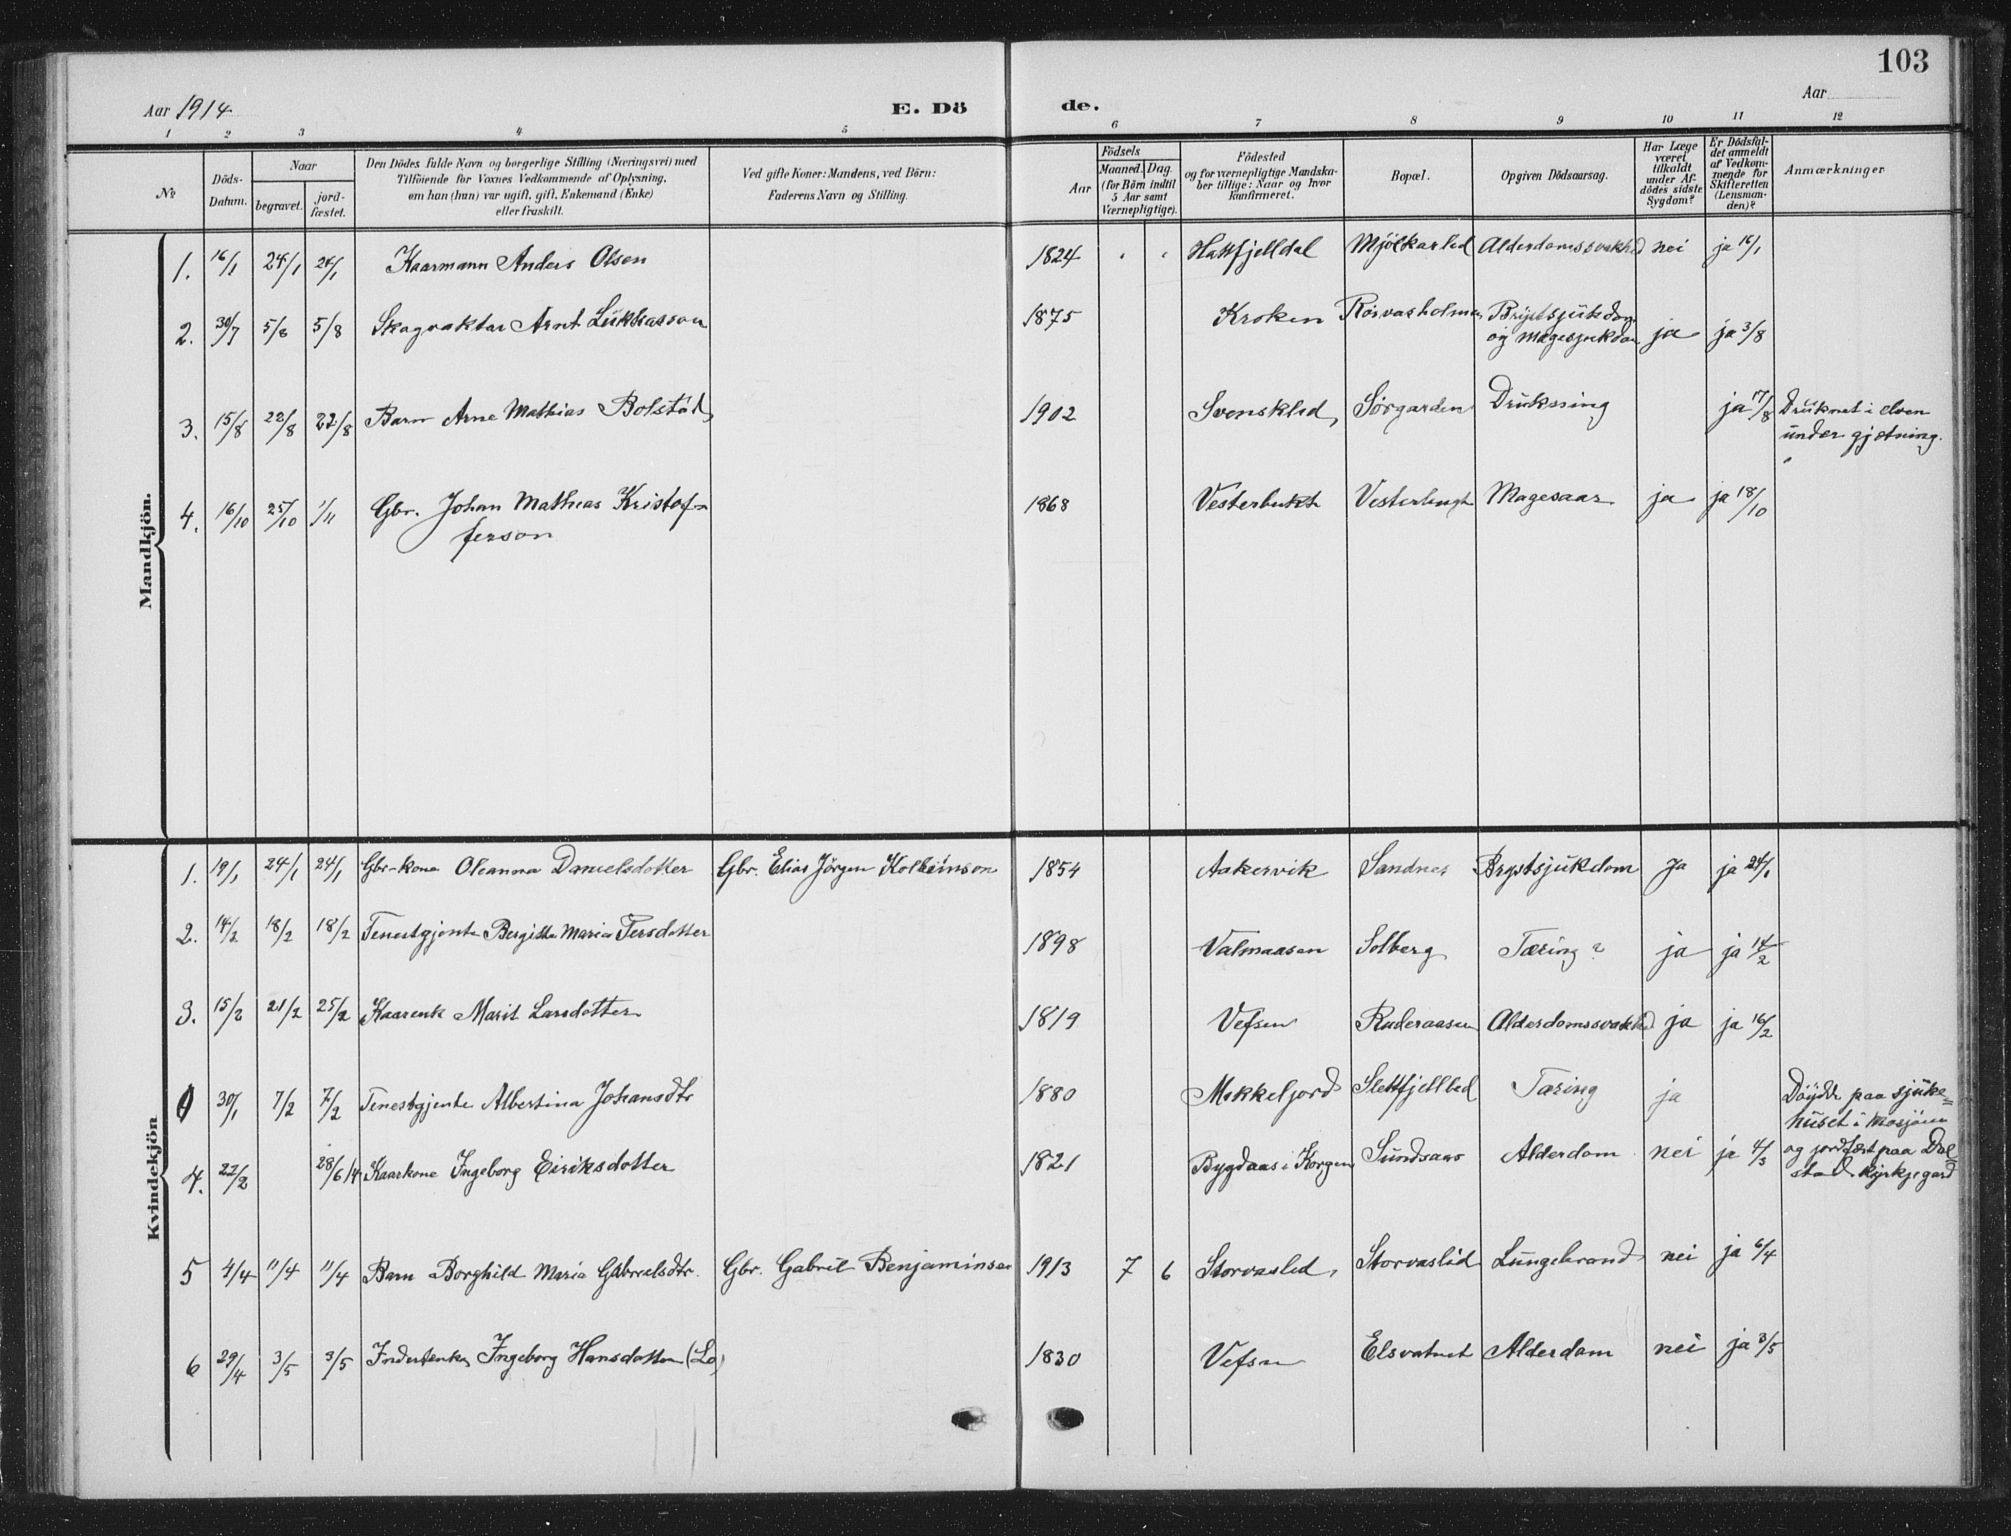 103
Aar 1914
E. Dö
de.
Aar
1 2 3 4 5 6 7 8 9 10 11 12
№
Döds-Datum.
Naar
begravet.
jord-fæstet.
Den Dödes fulde Navn og borgerlige Stilling (Næringsvei) med
Tilföiende for Voxnes Vedkommende af Oplysning,
om han (hun) var ugift, gift, Enkemand (Enke)
eller fraskilt.
Ved gifte Koner: Mandens, ved Börn:
Faderens Navn og Stilling.
Aar
Födsels
Maaned. Dag
(for Börn indtil
5 Aar samt
Værnepligtige).
Födested
og for værnepligtige Mandska-
ber tillige: Naar og hvor
konfirmeret.
Bopæl.
Opgiven Dödsaarsag.
Har Læge
været
tilkaldt
under Af-
dödes sidste
Sygdom?
Er Dödsfal-
det anmeldt
af Vedkom-
mende for
Skifteretten
(Lensman-
den)?
Anmærkninger
Mandkjön.
1. 16/1 24/1 24/1 Kaarmann Anders Olsen 1824 Hattfjelldal Mjölkarled Alderdomssvakhed nei ja 16/1
2. 30/7 5/8 5/8 Skogvaktar Arnt Lukkasson 1875 Kroken Rörvasholmen Brystsjukdom
og Magesjukdom ja ja 3/8
3. 15/8 22/8 22/8 Barn Arne Mathias Bolstad 1902 Svensklid Sörgarden Drukning ja 17/8 Druknet i elven
under gjetning.
4. 16/10 25/10 1/11 Gbr. Johan Mathias Kristof-
ferson 1868 Vesterbukt Vesterbugt Magesaar ja ja 18/10
Kvindekjön
1. 19/1 24/1 24/1 Gbr-kona Oleanna Danielsdotter Gbr. Elias Jörgen Kolbeinson 1854 Aakervik Sandnes Brystsjukdom Ja ja 24/1
2. 14/2 18/2 18/2 Tenestgjente Bergitte Maria Persdotter 1898 Valmaasen Solberg Tæring? ja ja 14/2
3. 15/2 21/2 25/2 Kaarenk Marit Larsdotter 1819 Vefsen Ruderaasen Alderdomssvakhed ja ja 16/2
30/1 7/2 7/2 Tenestgjente Albertina Johansdtr 1880 Mikkeljord Slettfjellled Tæring ja Döydde paa sjuke=
huset i Mosjöen
og jordfæst paa Dol=
stad kyrkjegard
4. 22/2 28/6 14 Kaarkone Ingeborg Eiriksdotter 1821 Bygdaas i Korgen Sundsaas Alderdom nei ja 4/3
5 4/4 11/4 11/4 Barn Borghild Maria Gabrielsdtr. Gbr. Gabriel Benjaminsen 1913 7 6 Storvaslid Storvaslid Lungebrand nei ja 6/4
6 29/4 3/5 3/5 Inderstenke Ingeborg Hansdotter (Lo) 1830 Vefsn Elsvatnet Alderdom nei ja 3/5